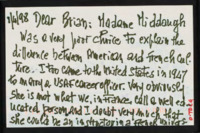 Dear Brian: Madame Middaugh
was a very poor choice to explain the
difference between American and French cul-
ture. I too came to the United States in 1947
to marry a USAF career officer. Very obviously
she is not what we, in France, call a well ed
ucated person and I doubt very much that
she could be an in a French